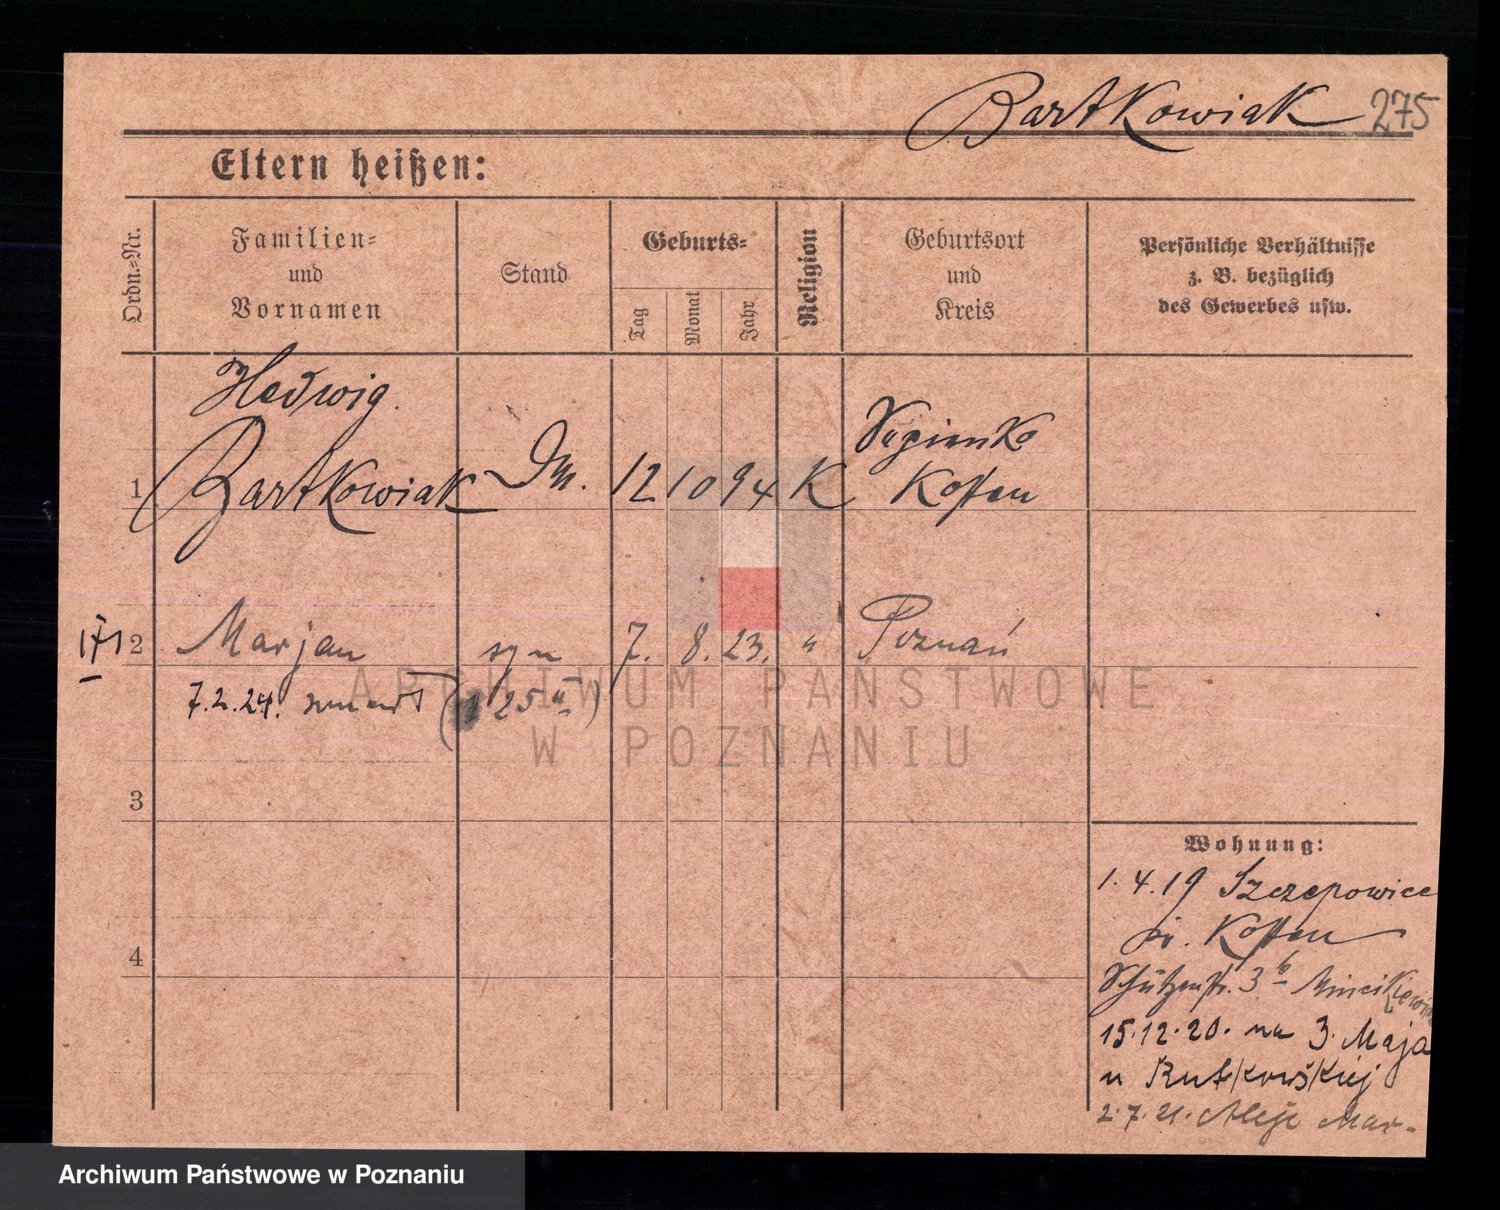 Bartkowiak 275
Eltern heißen:
Ordn.-Nr.
Familien-
und
Vornamen
Stand
Geburts-
Tag
Monat
Jahr
Religion
Geburtsort
und
Kreis
Persönliche Verhältnisse
z. B. bezüglich
des Gewerbes usw.
Hedwig
1 Bartkowiak Dm. 12 10 94 K
Kosten
171 2 Marjan syn 7. 8. 23. " Poznań
7.2.24. zmarł (25
3
4
Wohnung:
1.4.19 Szczepowice
Kr. Kosten
Schützenstr. 3b
15.12.20. na 3. Maja
u Rutkowskiej
2.7.21. Aleje Mar-
ARCHIWUM PAŃSTWOWE
W POZNANIU
Archiwum Państwowe w Poznaniu